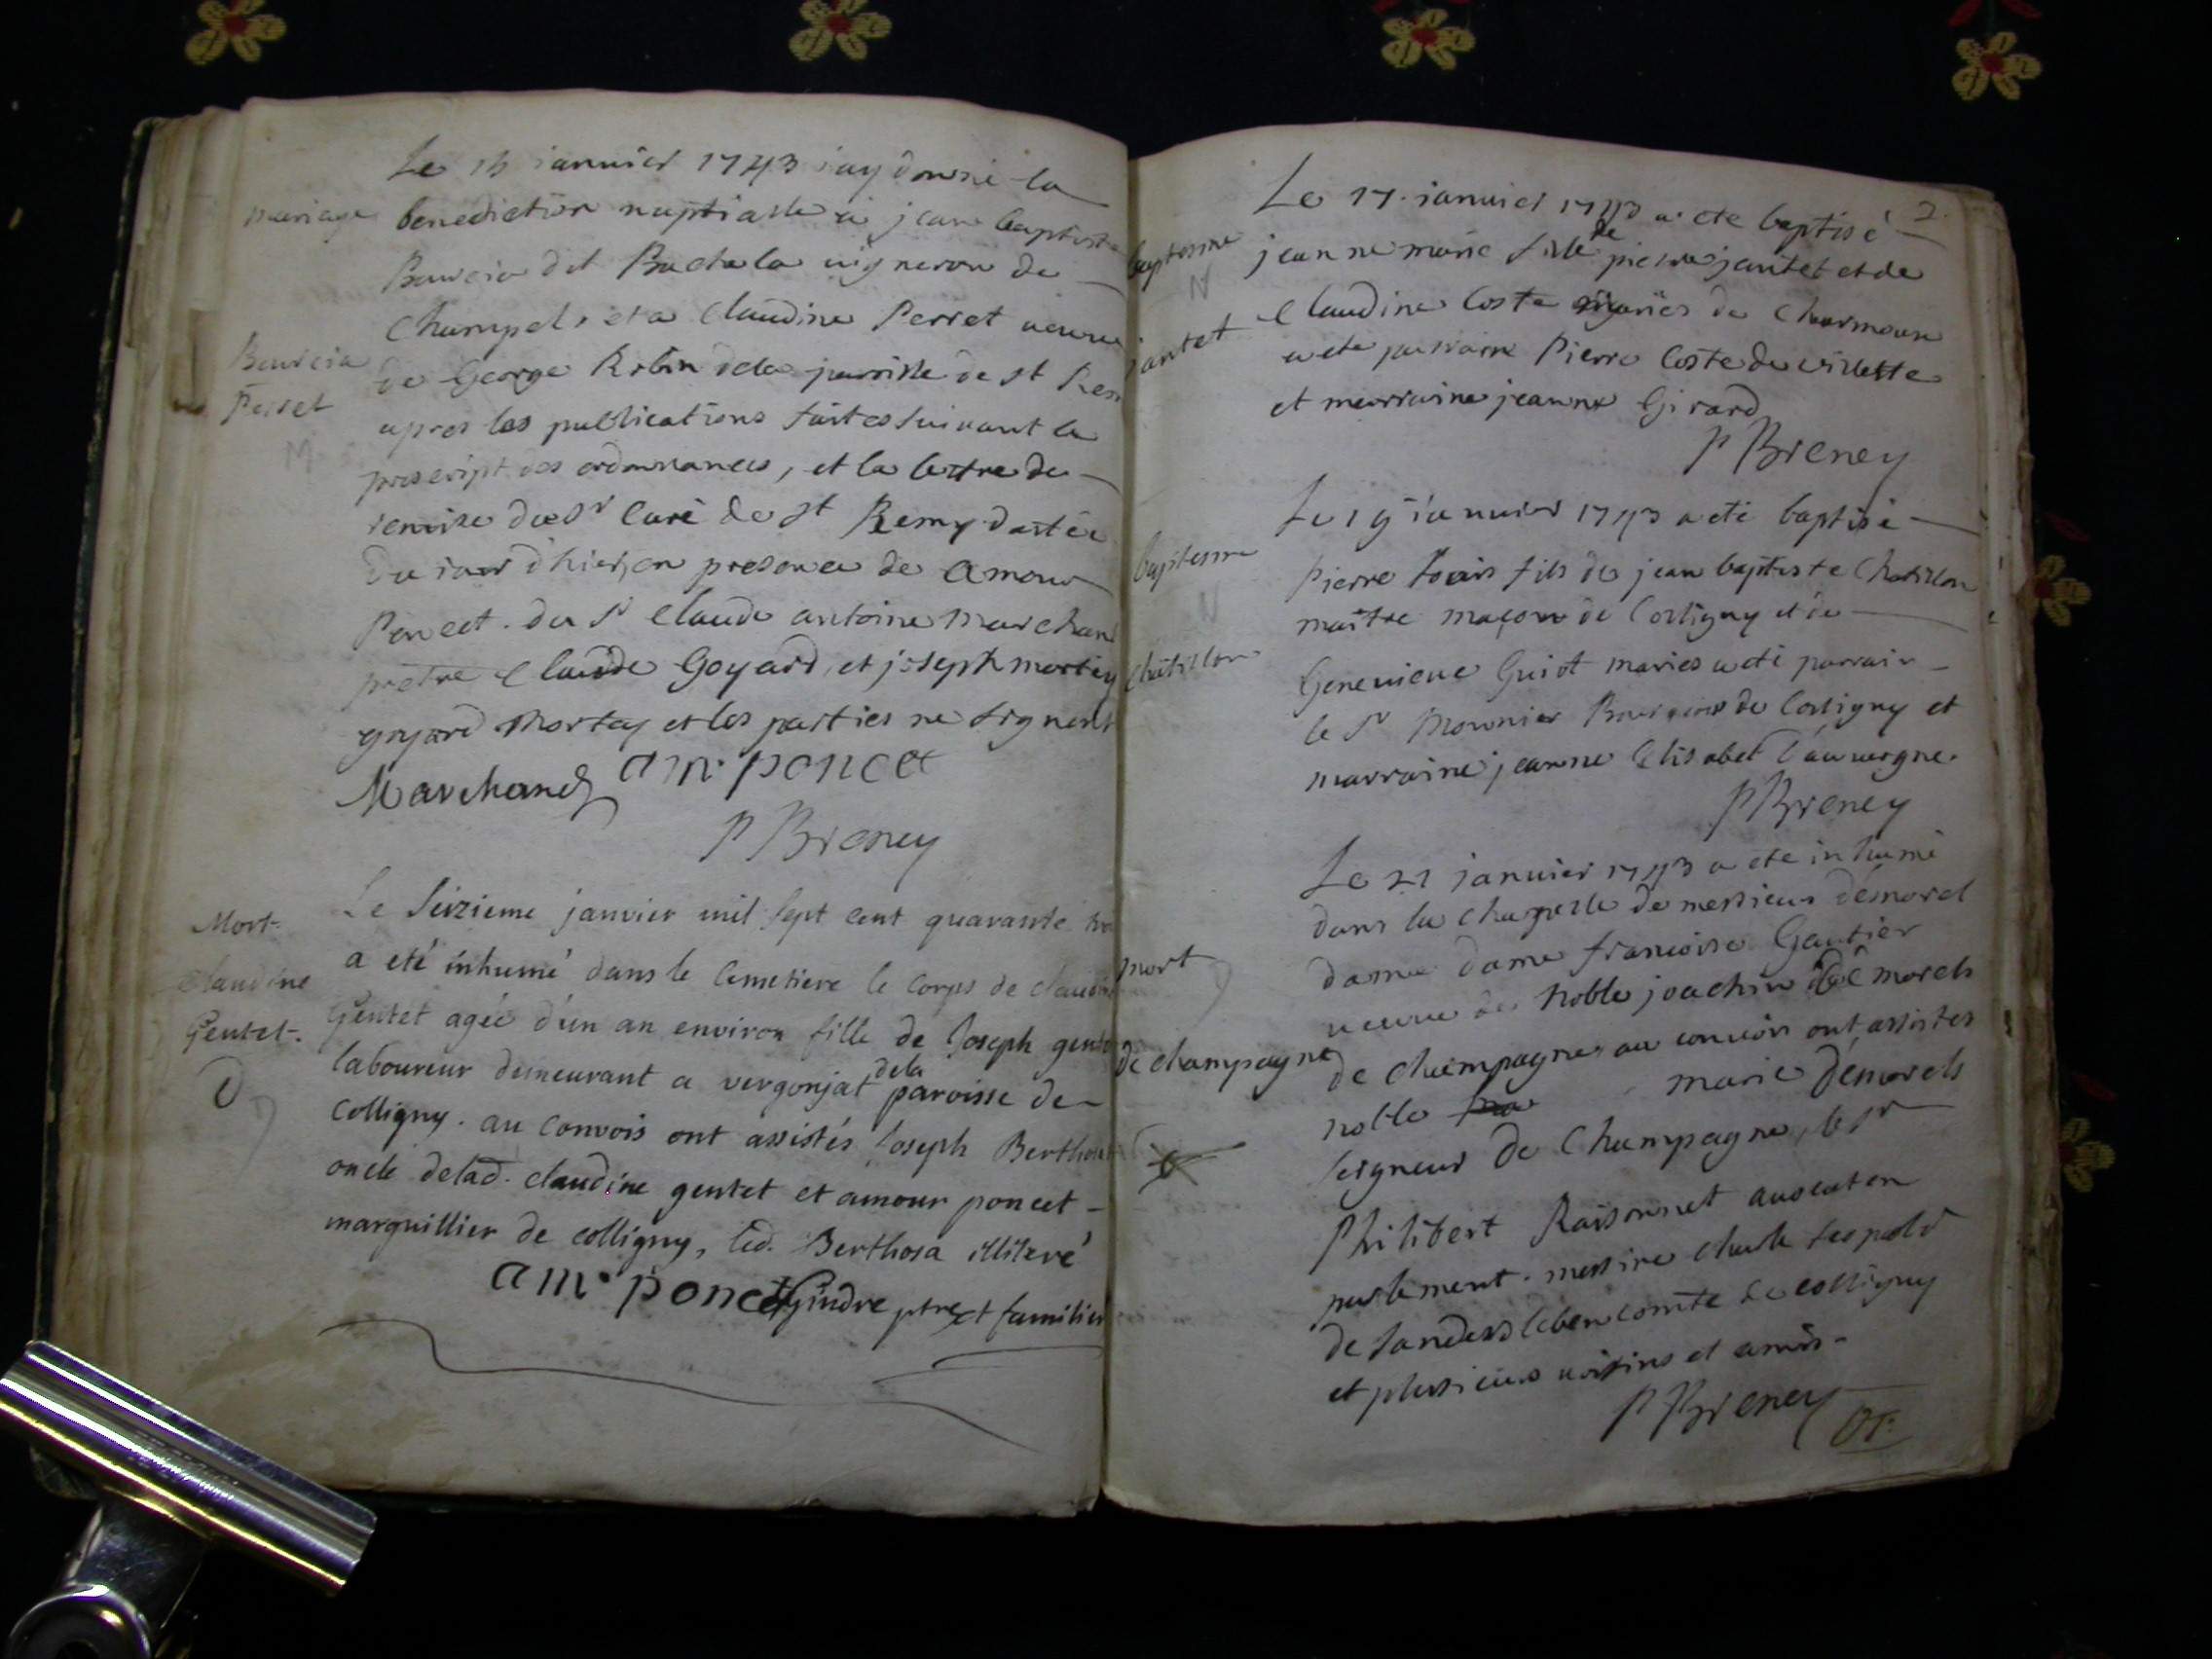 Le 15 ianuier 1743 iay donné la
mariage
benediction nuptialle a jean baptiste
Bourcia dit Bactala uigneron de
Champel, et a Claudine Perret ueuue
Bourcia
Perret
M
de George Robin dela paroisse de st Rem
apres les publications faites suiuant le
prescript des ordonnances, et la lettre de
remise du Sr Curé de st Remy dattée
du iour d'hier, en presence de Amour
Poncet. du Sr Claude antoine Marchand
prêtre Claude Goyard, et joseph mortey
goyard Mortey et les parties ne signent
Marchand am. poncet
P Breney
Mort
Claudine
Gentet.
Le Seizieme janvier mil sept cent quarante
a eté inhumé dans le Cemetiere le corps de claudine
Gentet agée d'un an environ fille de Joseph gentet
laboureur demeurant a vergonjat dela paroisse de
Colligny. au convois ont assistés Joseph Berthosa
oncle delad. claudine gentet et amour poncet
marguillier de colligny, led. Berthosa illiteré
am. poncet Gindre ptre et familier
2.
Le 17. ianuier 1743 a été baptisé
baptesme
N
jantet
jeanne marie fille de pierre jantet et de
Claudine Coste mariés de Charmoux
a eté parrain Pierre Coste de Villette
et marraine jeanne Girard
P Breney
Le 19 ianuier 1743 a eté baptisé
baptesme
N
Châtillon
Pierre Louis fils de jean baptiste Chatillon
maître maçon de Colligny et de
Geneuieue Guiot mariés a eté parrain
le Sr Mounier Bourgeois de Colligny et
marraine jeanne Elisabet l'auuergne.
P Breney
Le 21 januier 1743 a eté inhumé
mort
de champagne
dans la chapelle de messieurs démorel
dame dame francoise Gautier
ueuue de Noble joachin dé morels
de champagne, au conuois ont assistes
noble marie Démorels
seigneur de Champagne, le Sr
Philibert Raisonnet auocat en
parlement. messire Charle Leopold
de Sandersleben comte de colligny
et plusieurs uoisins et amis.
P Breney